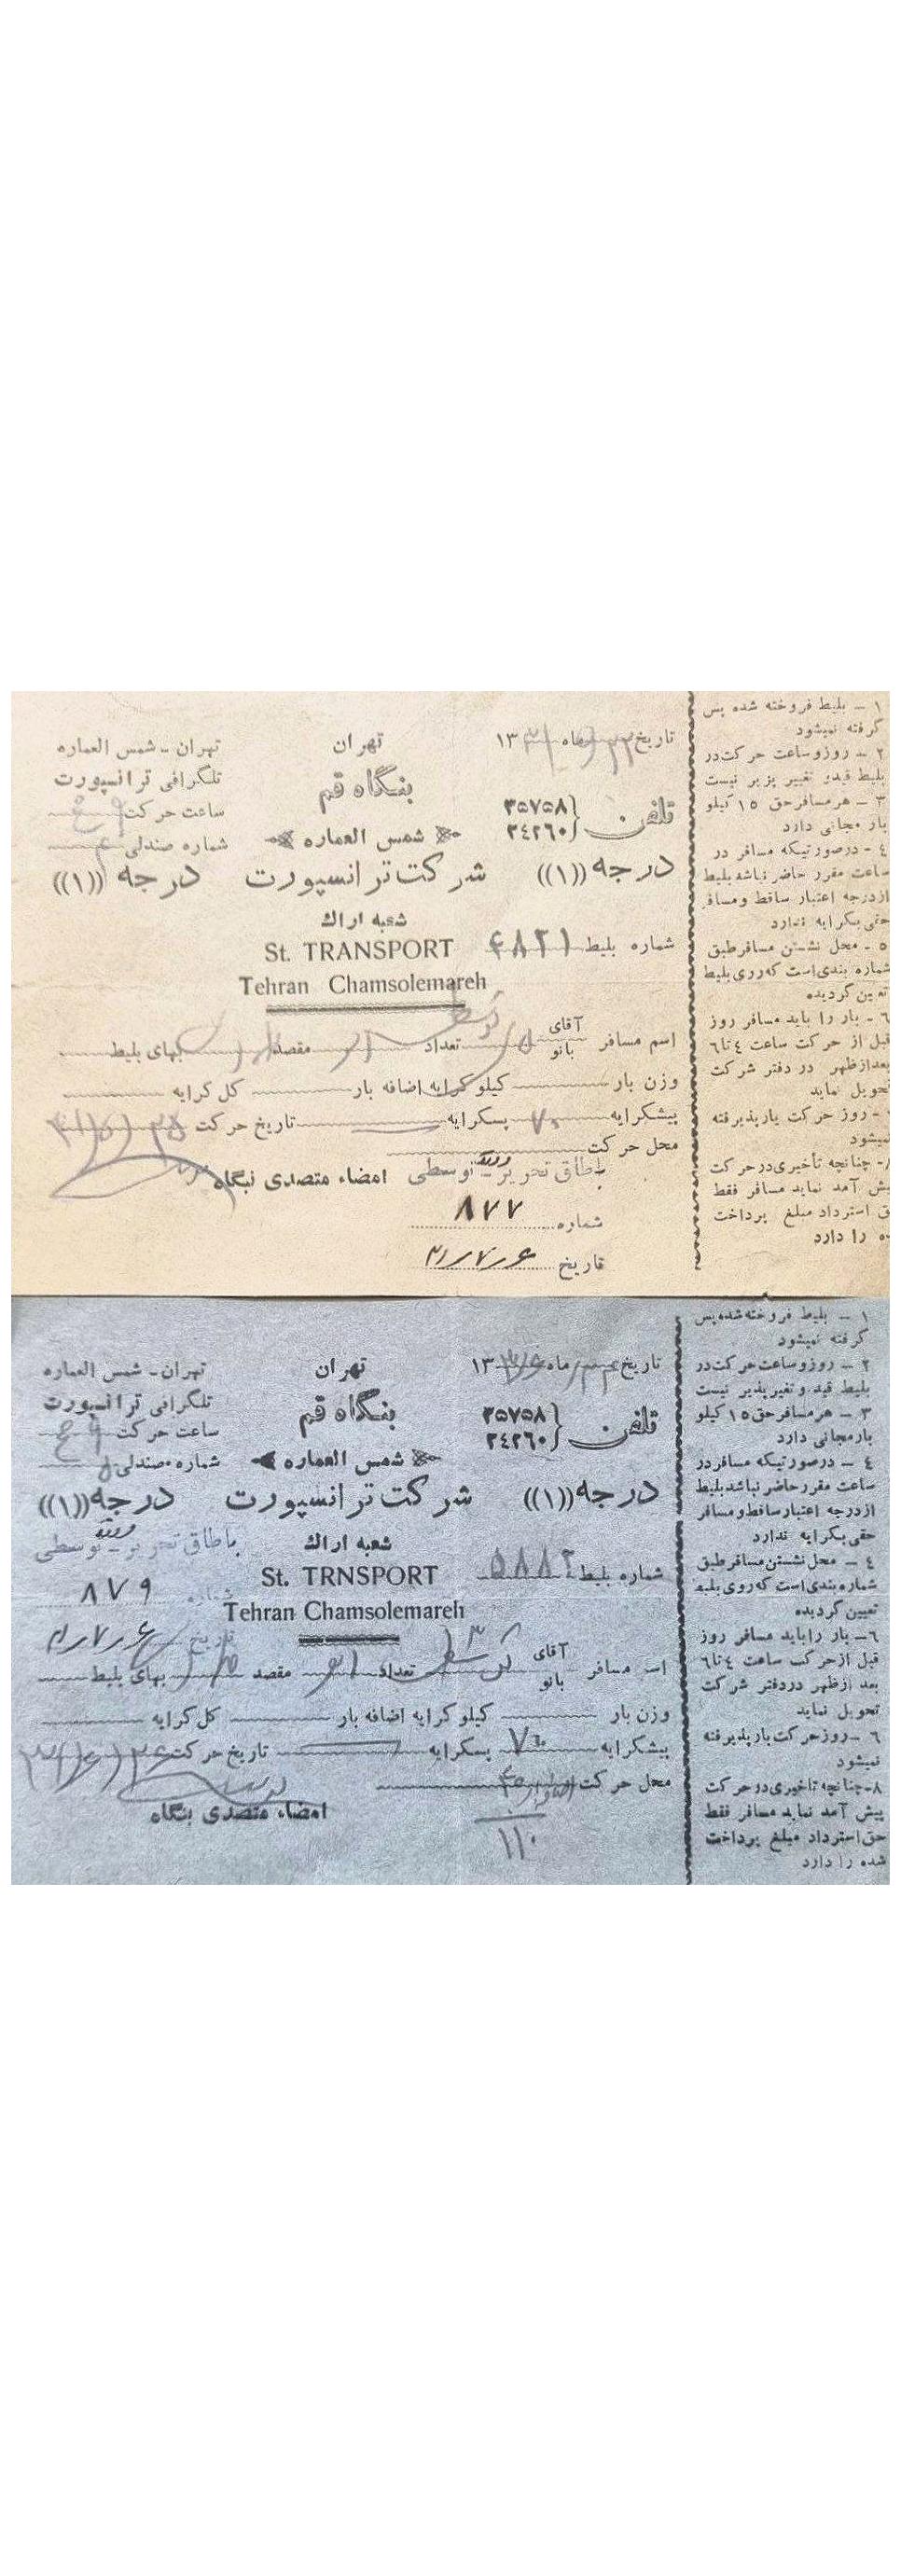 تهران - شمس العماره
تلگرافی ترانسپورت
ساعت حرکت
شماره صندلی
درجه ((۱))
تهران
بنگاه قم
شمس العماره
شرکت ترانسپورت
شعبه اراك
St. TRANSPORT
Tehran Chamsolemareh
تاریخ ماه ۱۳
تلفن { ۳۵۷۵۸ ۲٤۲۶۰
درجه ((۱))
شماره بلیط ۴۸۲۱
اسم مسافر آقای بانو تعداد مقصد بهای بلیط
وزن بار کیلو کرایه اضافه بار کل کرایه
پیشکرایه ۷۰ پسکرایه تاریخ حرکت
محل حرکت
باطاق تحریر - توسطی امضاء متصدی نبگاه
شماره ۸۷۷
تاریخ ۶ ر ۷ ر ۳۱
۱ - بلیط فروخته شده پس
گرفته نمیشود
۲ - روز و ساعت حرکت در
بلیط قید و تغییر پزیر نیست
۳ - هر مسافر حق ۱۵ کیلو
بار مجانی دارد
٤ - درصورتیکه مسافر در
ساعت مقرر حاضر نباشد بلیط
از درجه اعتبار ساقط و مسافر
حقی بکرایه ندارد
۵ - محل نشستن مسافر طبق
شماره بندی است که روی بلیط
تعیین گردیده
٦ - بار را باید مسافر روز
قبل از حرکت ساعت ٤ تا ٦
بعد از ظهر در دفتر شرکت
تحویل نماید
- روز حرکت بار پذیرفته
نمیشود
۸- چنانچه تأخیری در حرکت
پیش آمد نماید مسافر فقط
حق استرداد مبلغ پرداخت
شده را دارد
تهران - شمس العماره
تلگرافی ترانسپورت
ساعت حرکت
شماره صندلی
درجه ((۱))
باطاق تحریر - توسطی
۸۷۹
تاریخ ۶ ر ۷ ر ۳۱
تهران
بنگاه قم
شمس العماره
شرکت ترانسپورت
شعبه اراك
St. TRNSPORT
Tehran Chamsolemareh
تاریخ ماه ۱۳
تلفن { ۳۵۷۵۸ ۲٤۲۶۰
درجه ((۱))
شماره بلیط ۵۸۸۲
اسم مسافر آقای بانو تعداد مقصد بهای بلیط
وزن بار کیلو کرایه اضافه بار کل کرایه
پیشکرایه ۷۰ پسکرایه تاریخ حرکت
محل حرکت
امضاء متصدی بنگاه
۱۱۰
۱ - بلیط فروخته شده پس
گرفته نمیشود
۲ - روز و ساعت حرکت در
بلیط قید و تغیر پذیر نیست
۳ - هر مسافر حق ۱۵ کیلو
بار مجانی دارد
٤ - درصورتیکه مسافر در
ساعت مقرر حاضر نباشد بلیط
از درجه اعتبار ساقط و مسافر
حقی بکرایه ندارد
٤ - محل نشستن مسافر طبق
شماره بندی است که روی بلیط
تعیین گردیده
٦- بار را باید مسافر روز
قبل از حرکت ساعت ٤ تا ٦
بعد از ظهر در دفتر شرکت
تحویل نماید
٦ - روز حرکت بار پذیرفته
نمیشود
۸- چنانچه تاخیری در حرکت
پیش آمد نماید مسافر فقط
حق استرداد مبلغ پرداخت
شده را دارد